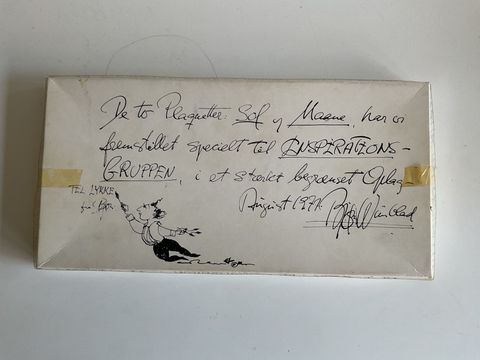 De to Plaquetter: Sol og Maane, har vi
fremstillet specielt til INSPIRATIONS-
GRUPPEN, i et stærkt begrænset Oplag-
TIL LYKKE
August 197
Bjørn Wiinblad